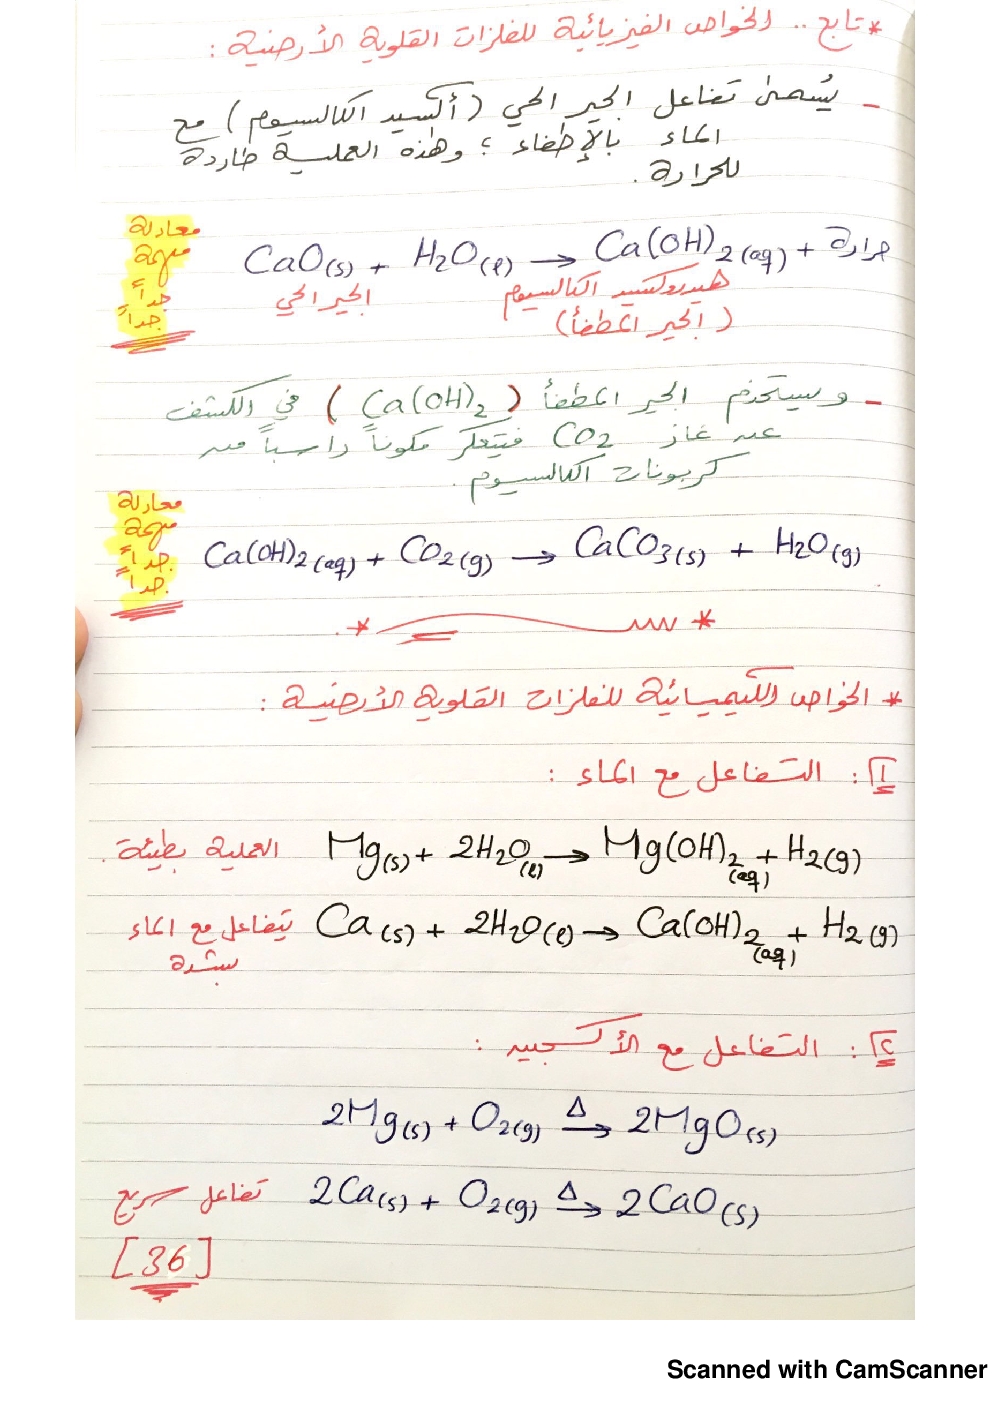 * تابع .. الخواص الفيزيائية للفلزات القلوية الأرضية :
- يُسمى تفاعل الجير الحي ( أكسيد الكالسيوم ) مع
الماء بالإطفاء ؛ وهذه العملية طاردة
للحرارة .
معادلة
مهمة
جداً
جداً
CaO(s) + H2O(l) → Ca(OH)2(aq) + حرارة
الجير الحي
هيدروكسيد الكالسيوم
( الجير المطفأ )
- ويستخدم الجير المطفأ ( Ca(OH)2 ) في الكشف
عن غاز CO2 فيتعكر مكوناً راسباً من
كربونات الكالسيوم .
معادلة
مهمة
جداً
جداً
Ca(OH)2(aq) + CO2(g) → CaCO3(s) + H2O(g)
* الخواص الكيميائية للفلزات القلوية الأرضية :
١ : التفاعل مع الماء :
Mg(s) + 2H2O(l) → Mg(OH)2(aq) + H2(g) العملية بطيئة .
Ca(s) + 2H2O(l) → Ca(OH)2(aq) + H2(g) يتفاعل مع الماء
بشدة
٢ : التفاعل مع الأكسجين :
2Mg(s) + O2(g) Δ→ 2MgO(s)
2Ca(s) + O2(g) Δ→ 2CaO(s) تفاعل سريع
[36]
Scanned with CamScanner